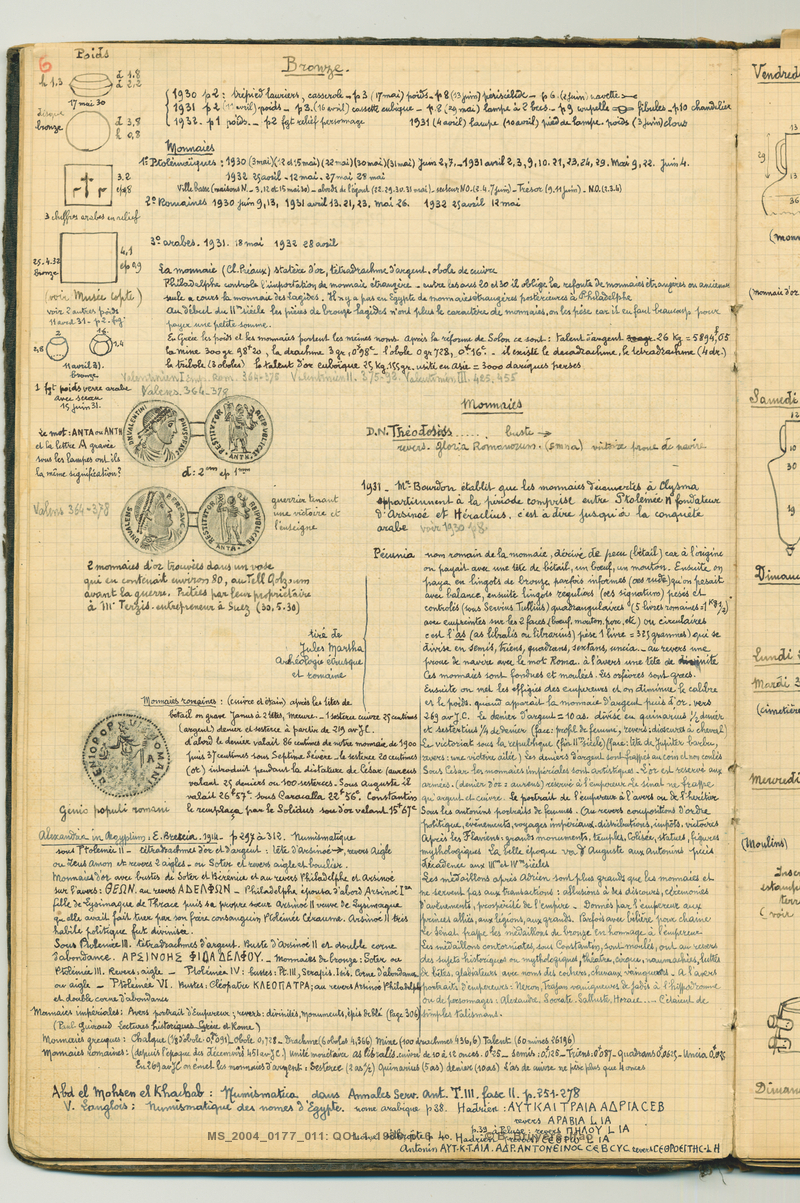 6
Poids
Bronze.
h 1,3
d 1.8
d 2,2
17 mai 30
disque
bronze
d 3,8
h 0,8
3.2
ep 0,8
3 chiffres arabes en relief
25.4.32
bronze
4,1
ep 0,9
(voir Musée Copte)
voir 2 autres poids
11 avril 31. - p2.
11 avril 31.
bronze
1 fgt poids verre arabe
avec sceau
15 juin 31.
Le mot: ANTA ou ANTN
et la lettre A gravée
sous les lampes ont ils
la même signification?
1930 p2 : trépied lauriers, casserole - p3 (17 mai) poids - p8 (13 juin) - p6. (2 juin) navette
1931 p2 (11 avril) poids - p3. (16 avril) cassette cubique - p.8 (29 mai) lampe à 2 becs. - p9 coupelle fibules - p.10 chandelier
1932. p1 poids. - p2 fgt relief personnage 1931 (4 avril) lampe (10 avril) pied de lampe. poids (3 juin) clous
Monnaies
1º Ptolémaïques : 1930 (3 mai) (12 et 15 mai) (22 mai) (30 mai) (31 mai) Juin 2,7. - 1931 avril 2, 3, 9, 10. 21, 23, 24, 29. Mai 9, 22. Juin 4.
1932 25 avril - 12 mai - 27 mai 28 mai
Ville basse (maisons N. - 3, 12 et 15 mai 30) - abords de l'égout (22. 29. 30. 31 mai) - secteur N.O. (2. 4. 7 juin) - Trésor (9. 11 juin) - N.O. (2.3.4)
2º Romaines 1930 juin 9, 13, 1931 avril 13. 21, 23, mai 26. 1932 25 avril 12 mai
3º arabes. 1931. 18 mai 1932 28 avril
La monnaie (Cl. Préaux) statère d'or, tétradrachme d'argent, obole de cuivre
Philadelphe contrôle l'importation de monnaie étrangère. - entre les ans 20 et 30 il oblige la refonte de monnaies étrangères ou anciennes
seule a cours la monnaie des Lagides. Il n'y a pas en Egypte de monnaies étrangères postérieures à Philadelphe
Au début du IIme siècle les pièces de bronze lagides n'ont plus le caractère de monnaies, on les pèse car il en faut beaucoup pour
payer une petite somme.
En Grèce les poids et les monnaies portent les mêmes noms. Après la réforme de Solon ce sont : talent d'argent 26 Kg = 5894f,05
la mine 300 gr 98f20, la drachme 3 gr, 0f98 - l'obole 0 gr 728, 0f16 - il existe le decadrachme, le tetradrachme (4 dr.)
le tribole (3 oboles) le talent d'or euboïque 25 kg.155 gr, usité en Asie = 3000 dariques perses
Valentinien I Emp. Rom. 364-375 Valentinien II. 375-92 Valentinien III. 425, 455
Valens. 364-378
d : 2cm ep 1mm
Valens 364-378
guerrier tenant
une victoire et
l'enseigne
2 monnaies d'or trouvées dans un vase
qui en contenait environ 80, au Tell Qolzoum
avant la guerre. Prêtées par leur propriétaire
à Mr Terzis. entrepreneur à Suez (30.5.30)
Monnaies
D.N. Théodosios ..... buste →
revers. Gloria Romanorum. (smna) victoire proue de navire
1931 - Mr Bourdon établit que les monnaies découvertes à Clysma
appartiennent à la période comprise entre Ptolémée II fondateur
d'Arsinoé et Héraclius, c'est à dire jusqu'à la conquête
arabe voir 1930 p8.
Pécunia nom romain de la monnaie, dérivé de pecu (bétail) car à l'origine
on payait avec une tête de bétail, un bœuf, un mouton. Ensuite on
paya en lingots de bronze parfois informes (oes rude) qu'on pesait
avec balance, ensuite lingots réguliers (oes signatum) pesés et
contrôlés (sous Servius Tullius) quadrangulaires (5 livres romaines = 1Kg 1/2)
avec empreintes sur les 2 faces (bœuf, mouton, porc, etc.) ou circulaires
c'est l'as (as libralis ou librarius) pèse 1 livre = 325 grammes) qui se
divise en semis, triens, quadrans, sextans, uncia. - au revers une
proue de navire avec le mot Roma. à l'avers une tête de divinité
Ces monnaies sont fondues et moulées. Les orfèvres sont grecs.
Ensuite on met les effigies des empereurs et on diminue le calibre
et le poids. quand apparaît la monnaie d'argent puis d'or. vers
269 av J.C. le denier d'argent = 10 as. divisé en quinarius 1/2 denier
et sestertius 1/4 de denier (face : profil de femme, revers : dioscures à cheval)
Le victoriat sous la république (fin IIme siècle) (face : tête de Jupiter barbu,
revers : une victoire ailée) Les deniers d'argent sont frappés au coin et non coulés
Sous César. les monnaies impériales sont artistiques. L'or est réservé aux
armées. (denier d'or : aureus) réservé à l'empereur le sénat ne frappe
qu'argent et cuivre. le portrait de l'empereur à l'avers ou de l'héritier
Sous les antonins portraits de femmes. (Au revers compositions d'ordre
politique, évènements, voyages impériaux, distributions, impôts, victoires
(Après les Flaviens : grands monuments, temples, Colisée, statues, figures
mythologiques la belle époque va d'Auguste aux Antonins puis
Décadence aux IIIme et IVme siècles
Les médaillons après Adrien sont plus grands que les monnaies et
ne servent pas aux transactions : allusions à des discours, cérémonies
d'avènements, prospérité de l'empire. - Donnés par l'empereur aux
princes alliés, aux légions, aux grands. Parfois avec bélière pour chaîne
le sénat frappe les médaillons de bronze en hommage à l'empereur
Les médaillons contorniates, sous Constantin, sont moulés, ont au revers
des sujets historiques ou mythologiques, théâtre, cirque, naumachies, lutte
de bêtes, gladiateurs avec noms des cochers, chevaux vainqueurs - A l'avers
portraits d'empereurs : Néron, Trajan vainqueurs de jadis à l'hippodrome
ou de personnages : Alexandre, Socrate. Salluste, Horace .... C'étaient de
simples talismans.
tiré de
Jules Martha
Archéologie étrusque
et romaine
Monnaies romaines : (cuivre et étain) après les têtes de
bétail on grave Janus à 2 têtes, Mercure. - 1 sesterce cuivre 25 centimes
(argent) denier et sesterce à partir de 219 av J.C.
d'abord le denier valait 86 centimes de notre monnaie de 1900
puis 37 centimes sous Septime Sévère - le sesterce 20 centimes
(or) introduit pendant la dictature de César (aureus
valant 25 deniers ou 100 sesterces. Sous Auguste il
valait 26f57c. sous Caracalla 22f56c. Constantin
le remplaça par le Solidus sou d'or valant 15f67c
GENIO POPULI ROMANI
Génie populi romani
Alexandrea in Aegyptum : E. Breccia. 1914 - p 297 à 312. Numismatique
sous Ptolémée II - tétradrachmes d'or et d'argent : tête d'Arsinoé →, revers Aigle
ou Zeus Amon et revers 2 aigles - ou Soter et revers aigle et bouclier.
Monnaies d'or avec bustes de Soter et Bérénice et au revers Philadelphe et Arsinoé
sur l'avers : ΘΕΩΝ. au revers ΑΔΕΛΦΩΝ - Philadelphe épousa d'abord Arsinoé Ière
fille de Lysimaque de Thrace puis sa propre sœur Arsinoé II veuve de Lysimaque
qu'elle avait fait tuer par son frère consanguin Ptolémée Céraunos. Arsinoé II très
habile politique fut divinisée.
Sous Ptolémée III. tétradrachmes d'argent. Buste d'Arsinoé II et double corne
d'abondance. ΑΡΣΙΝΟΗΣ ΦΙΛΑΔΕΛΦΟΥ. - Monnaies de bronze : Soter ou
Ptolémée III. Revers : aigle - Ptolémée IV : bustes : Pt. III, Serapis. Isis. Corne d'abondance
ou aigle - Ptolémée VI. Bustes : Cléopatre ΚΛΕΟΠΑΤΡΑ; au revers Arsinoé Philadelphe
et double corne d'abondance
Monnaies impériales : Avers portrait d'Empereur ; revers : divinités, monuments, épis de blé (page 306)
(Paul Guiraud Lectures historiques Grèce et Rome)
Monnaies grecques : Chalque (1/8 d'obole 0f,091) Obole 0,728 - Drachme (6 oboles 4,366) Mine (100 drachmes 436,6) Talent (60 mines 26196)
Monnaies romaines : (depuis l'époque des Décemvirs 451 av J.C.) Unité monétaire as libralis. cuivre de 10 à 12 onces. 0f25 - Semis : 0f125 - Triens : 0f087 - Quadrans 0f0625 - Uncia 0f025
En 269 av J.C on émet les monnaies d'argent : Sesterce (2 as 1/2) Quinarius (5 as) denier (10 as) L'as de cuivre ne pèse plus que 4 onces
Abd el Mohsen el Khachab : Numismatica dans Annales Serv. ant. T.III. fasc II. p.251-278
V. Langlois : Numismatique des nomes d'Egypte. nome arabique p 38. Hadrien : ΑΥΤΚΑΙ ΤΡΑΙΑ ΑΔΡΙΑ CΕΒ
revers ΑΡΑΒΙΑ L ΙΑ
p.39 à Péluse : revers ΠΗΛΟΥ L ΙΑ
p 40. Hadrien revers CΕΘΡΩ L ΙΑ
Antonin ΑΥΤ·Κ·Τ·ΑΙΛ. ΑΔΡ. ΑΝΤΟΝΕΙΝΟC CΕΒ ΕΥC revers CΕΘΡΟΕΙΤΗC·L Η
MS_2004_0177_011: QOL
Vendredi
29
13
36
(monn
(monnaie d'or
Samedi
12
30
9
Dimanc
Lundi
Mardi 3
(cimetière
Mercredi
(Moulins)
Inse
estamp
terr
(voir
Dimanc